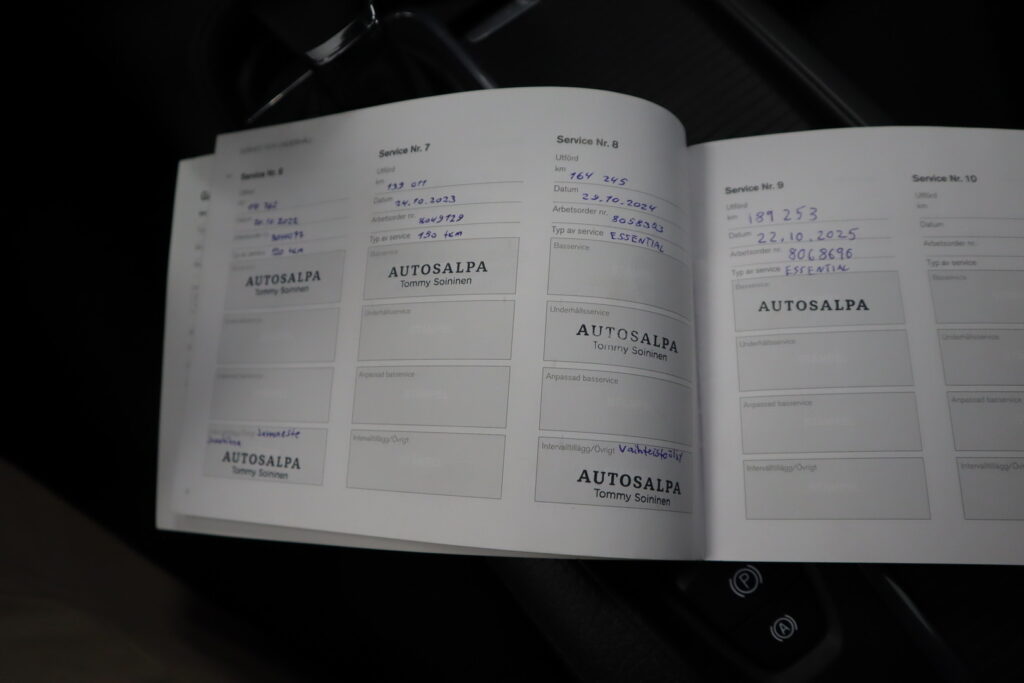 Service Nr. 6
Utförd
km
AUTOSALPA
Tommy Soininen
AUTOSALPA
Tommy Soininen
Service Nr. 7
Utförd
km 139 011
Datum 24.10.2023
Arbetsorder nr. 8049129
Typ av service 150 tkm
Basservice
AUTOSALPA
Tommy Soininen
Underhållsservice
Anpassad basservice
Intervalltillägg/Övrigt
Service Nr. 8
Utförd
km 164 245
Datum 29.10.2024
Arbetsorder nr. 8058323
Typ av service ESSENTIAL
Basservice
Underhållsservice
AUTOSALPA
Tommy Soininen
Anpassad basservice
Intervalltillägg/Övrigt Vaihteistoöljy
AUTOSALPA
Tommy Soininen
Service Nr. 9
Utförd
km 189 253
Datum 22.10.2025
Arbetsorder nr. 8068696
Typ av service ESSENTIAL
Basservice
AUTOSALPA
Underhållsservice
Anpassad basservice
Intervalltillägg/Övrigt
Service Nr. 10
Utförd
km
Datum
Arbetsorder nr.
Typ av service
Basservice
Underhållsservice
Anpassad basservice
Intervalltillägg/Övrigt
P
A